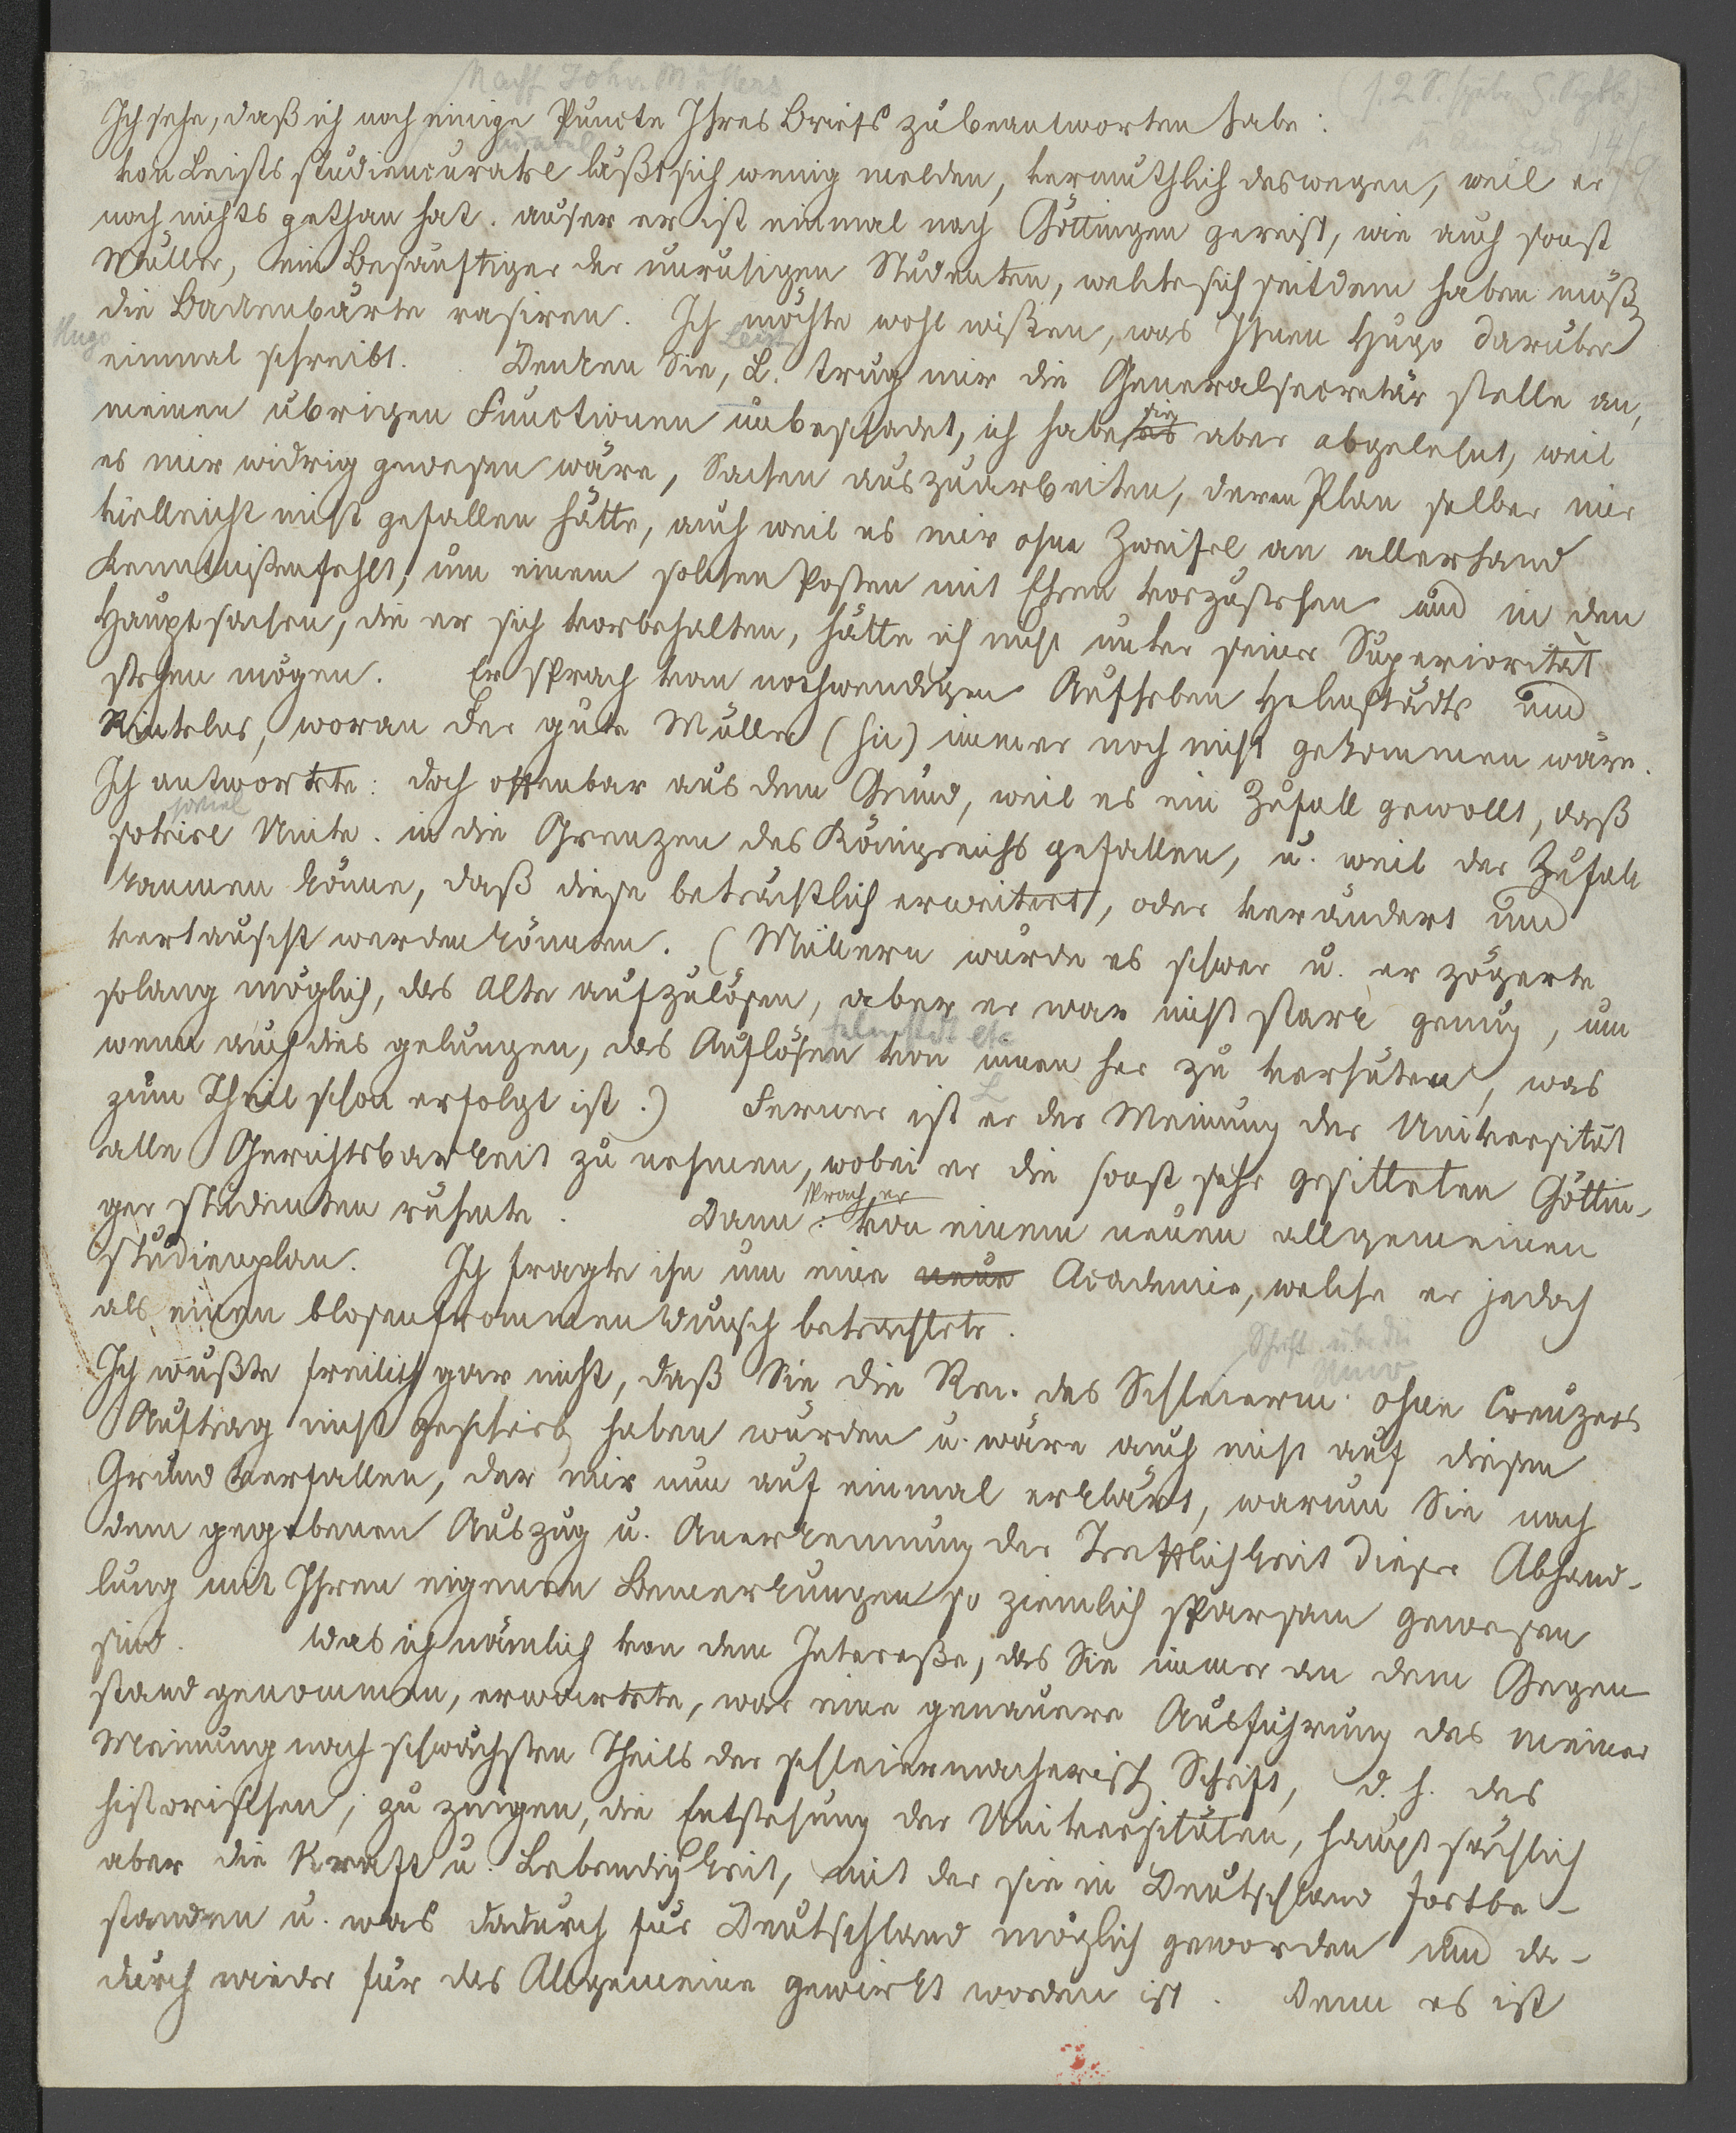 Nachf Joh. v Müllers
Ich sehe, daß ich noch einige Puncte Ihres Briefs zu beantworten habe:
von Leists Studiencuratel läßt sich wenig melden, vermuthlich deswegen, weil er
noch nichts gethan hat. auser er ist einmal nach Göttingen gereist, wie auch sonst
Müller, ein Besänftiger der unruhigen Studenten, welche sich seitdem haben müß
die Backenbärte rasiren. Ich möchte wohl wißen, was Ihnen Hugo darüber
Hugo
Leist
einmal schreibt. Denken Sie, L. trug mir die Generalsecretär stelle an,
meinen übrigen Functionen unbeschadet, ich habe es sie aber abgelehnt, weil
es mir widrig gewesen wäre, Sachen auszuarbeiten, deren Plan selber mir
vielleicht nicht gefallen hätte, auch weil es mir ohne Zweifel an allerhand
Kenntnißen fehlt, um einem solchen Posten mit Ehren vorzustehen und in den
Hauptsachen, die er sich vorbehalten, hätte ich nicht unter seiner Superiorität
stehen mögen. Er sprach von nothwendigen Aufheben Helmstädts und
Rintelns, woran der gute Müller (hic) immer noch nicht gekommen wäre.
Ich antwortete: doch offenbar aus dem Grund, weil es ein Zufall gewollt, daß
soviel
soviel Univ. in die Grenzen des Königreichs gefallen, u. weil der Zufall
kommen könne, daß diese beträchtlich erweitert, oder verändert und
vertauscht werden könnten. (Müllern wurde es schwer u. er zögerte
solang möglich, das Alte aufzulösen, aber er war nicht stark genug, um
Helmstedt etc
wenn auch dies gelungen, das Auflösen von innen her zu verhüten, was
L
zum Theil schon erfolgt ist.) Ferner ist er der Meinung der Universität
alle Gerichtsbarkeit zu nehmen, wobei er die sonst sehr gesitteten Göttin-
ger Studenten rühmte. Dann sprach er von einem neuen allgemeinen
Studienplan. Ich fragte ihn um eine neue Academie, welche er jedoch
als einen blosen frommen Wunsch betrachtete.
Schrift über die
Univ
Ich wußte freilich gar nicht, daß Sie die Rec. des Schleierm. ohne Creuzers
Auftrag nicht geschrieb haben würden u. wäre auch nicht auf diesen
Grund verfallen, der mir nun auf einmal erklärt, warum Sie nach
dem gegebenen Auszug u. Anerkennung der Trefflichkeit dieser Abhand-
lung mit Ihren eigenen Bemerkungen so ziemlich sparsam gewesen
sind. Was ich nämlich von dem Intereße, das Sie immer an dem Gegen-
stand genommen, erwartete, war eine genauere Ausführung des meiner
Meinung nach schwächsten Theils der schleiermacherisch Schrift, d. h. des
historischen, zu zeigen, die Entstehung der Universitäten, hauptsächlich
aber die Kraft u. Lebendigkeit, mit der sie in Deutschland fortbe-
standen u. was dadurch für Deutschland möglich geworden und da-
durch wieder für das Allgemeine gewirkt worden ist. Denn es ist